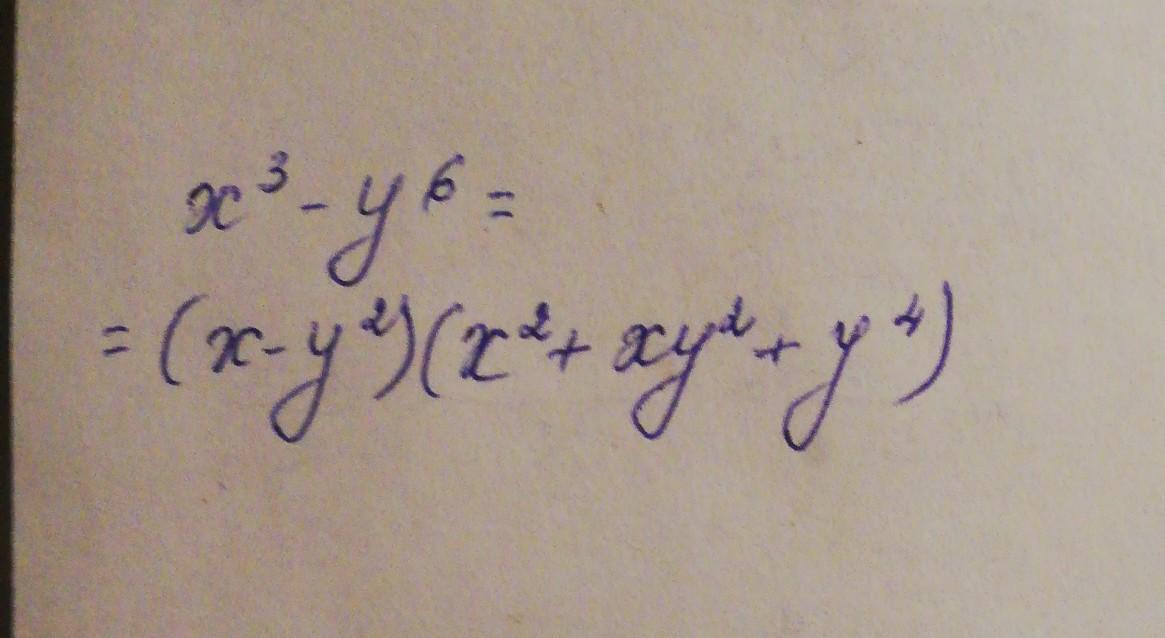 x³ - y⁶ =
= (x - y²)(x² + xy² + y⁴)